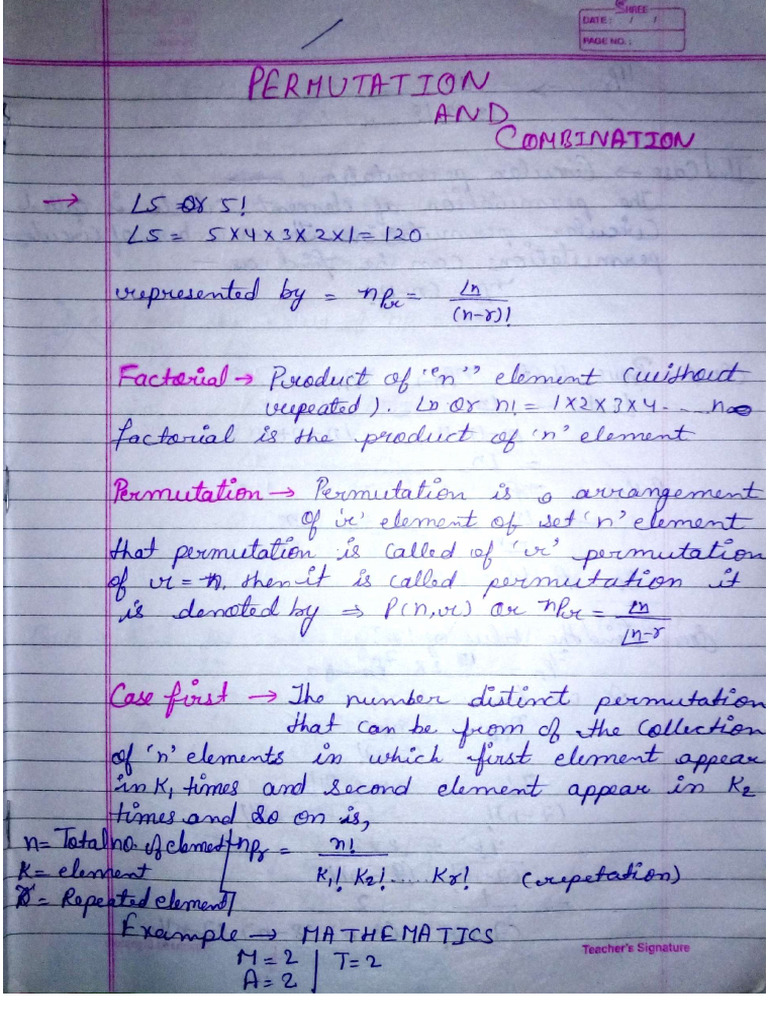 SHREE
DATE: / /
PAGE NO.:
PERMUTATION
AND
COMBINATION
→ ∟5 or 5!
∟5 = 5×4×3×2×1=120
represented by = nPr = ∟n / (n-r)!
Factorial → Product of "n" element (without
repeated). ∟n or n! = 1×2×3×4.... n∞
factorial is the product of 'n' element
Permutation → Permutation is a arrangement
of 'r' element of set 'n' element
that permutation is called of 'r' permutation
of r = n. then it is called permutation it
is denoted by ⇒ P(n,r) or nPr = ∟n / ∟n-r
Case first → The number distinct permutation
that can be from of the collection
of 'n' elements in which first element appear
in K₁ times and second element appear in K₂
times and so on is,
n = Total no. of element
K = element
r = Repeated element
nPr = n! / K₁! K₂!.... Kr! (repetation)
Example → MATHEMATICS
M = 2 | T = 2
A = 2
Teacher's Signature